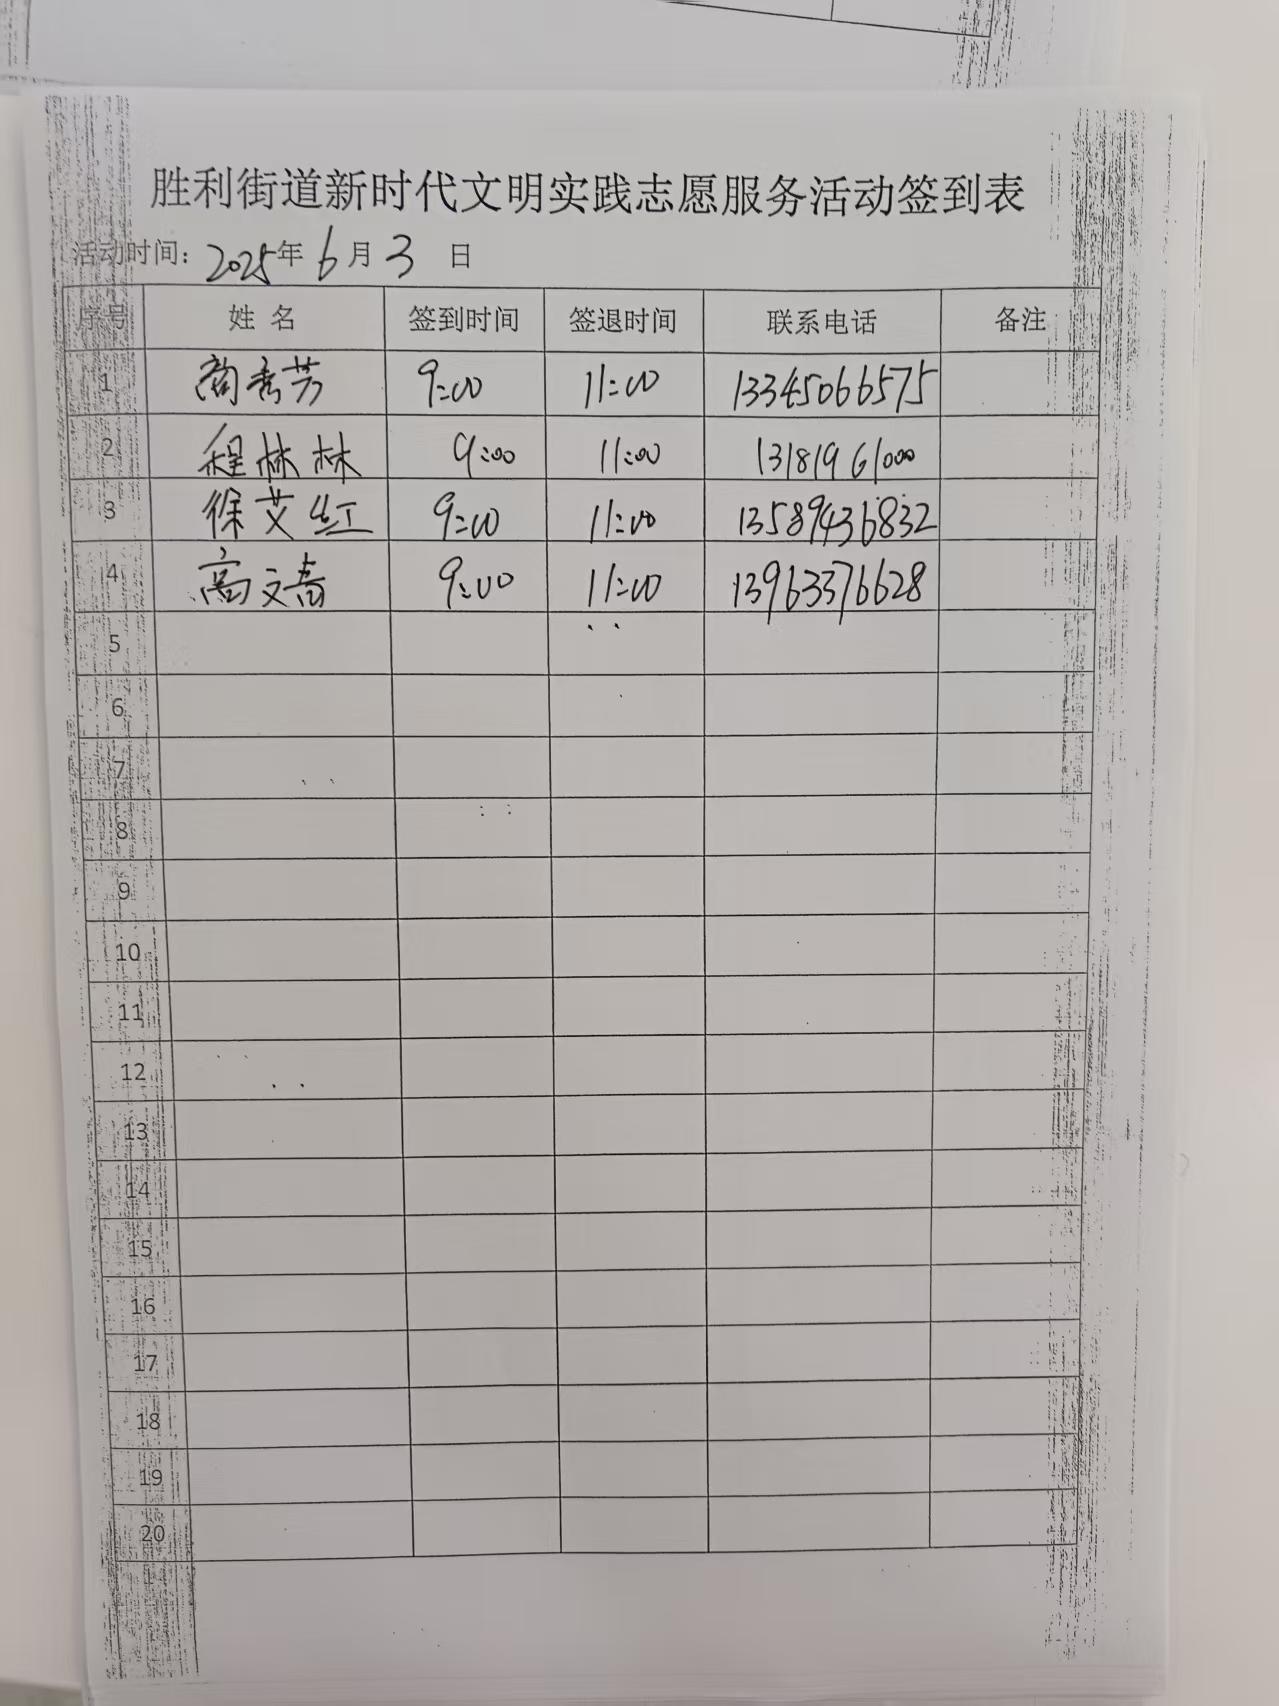 胜利街道新时代文明实践志愿服务活动签到表
活动时间：2025年6月3日
序号 姓 名 签到时间 签退时间 联系电话 备注
1 商秀芳 9:00 11:00 13345066575
2 程林林 9:00 11:00 13181961000
3 徐艾红 9:00 11:00 13589436832
4 高文斋 9:00 11:00 13963376628
5
6
7
8
9
10
11
12
13
14
15
16
17
18
19
20